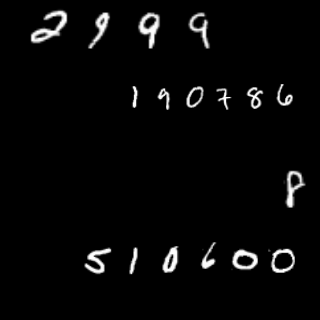 2999
190786
8
510600